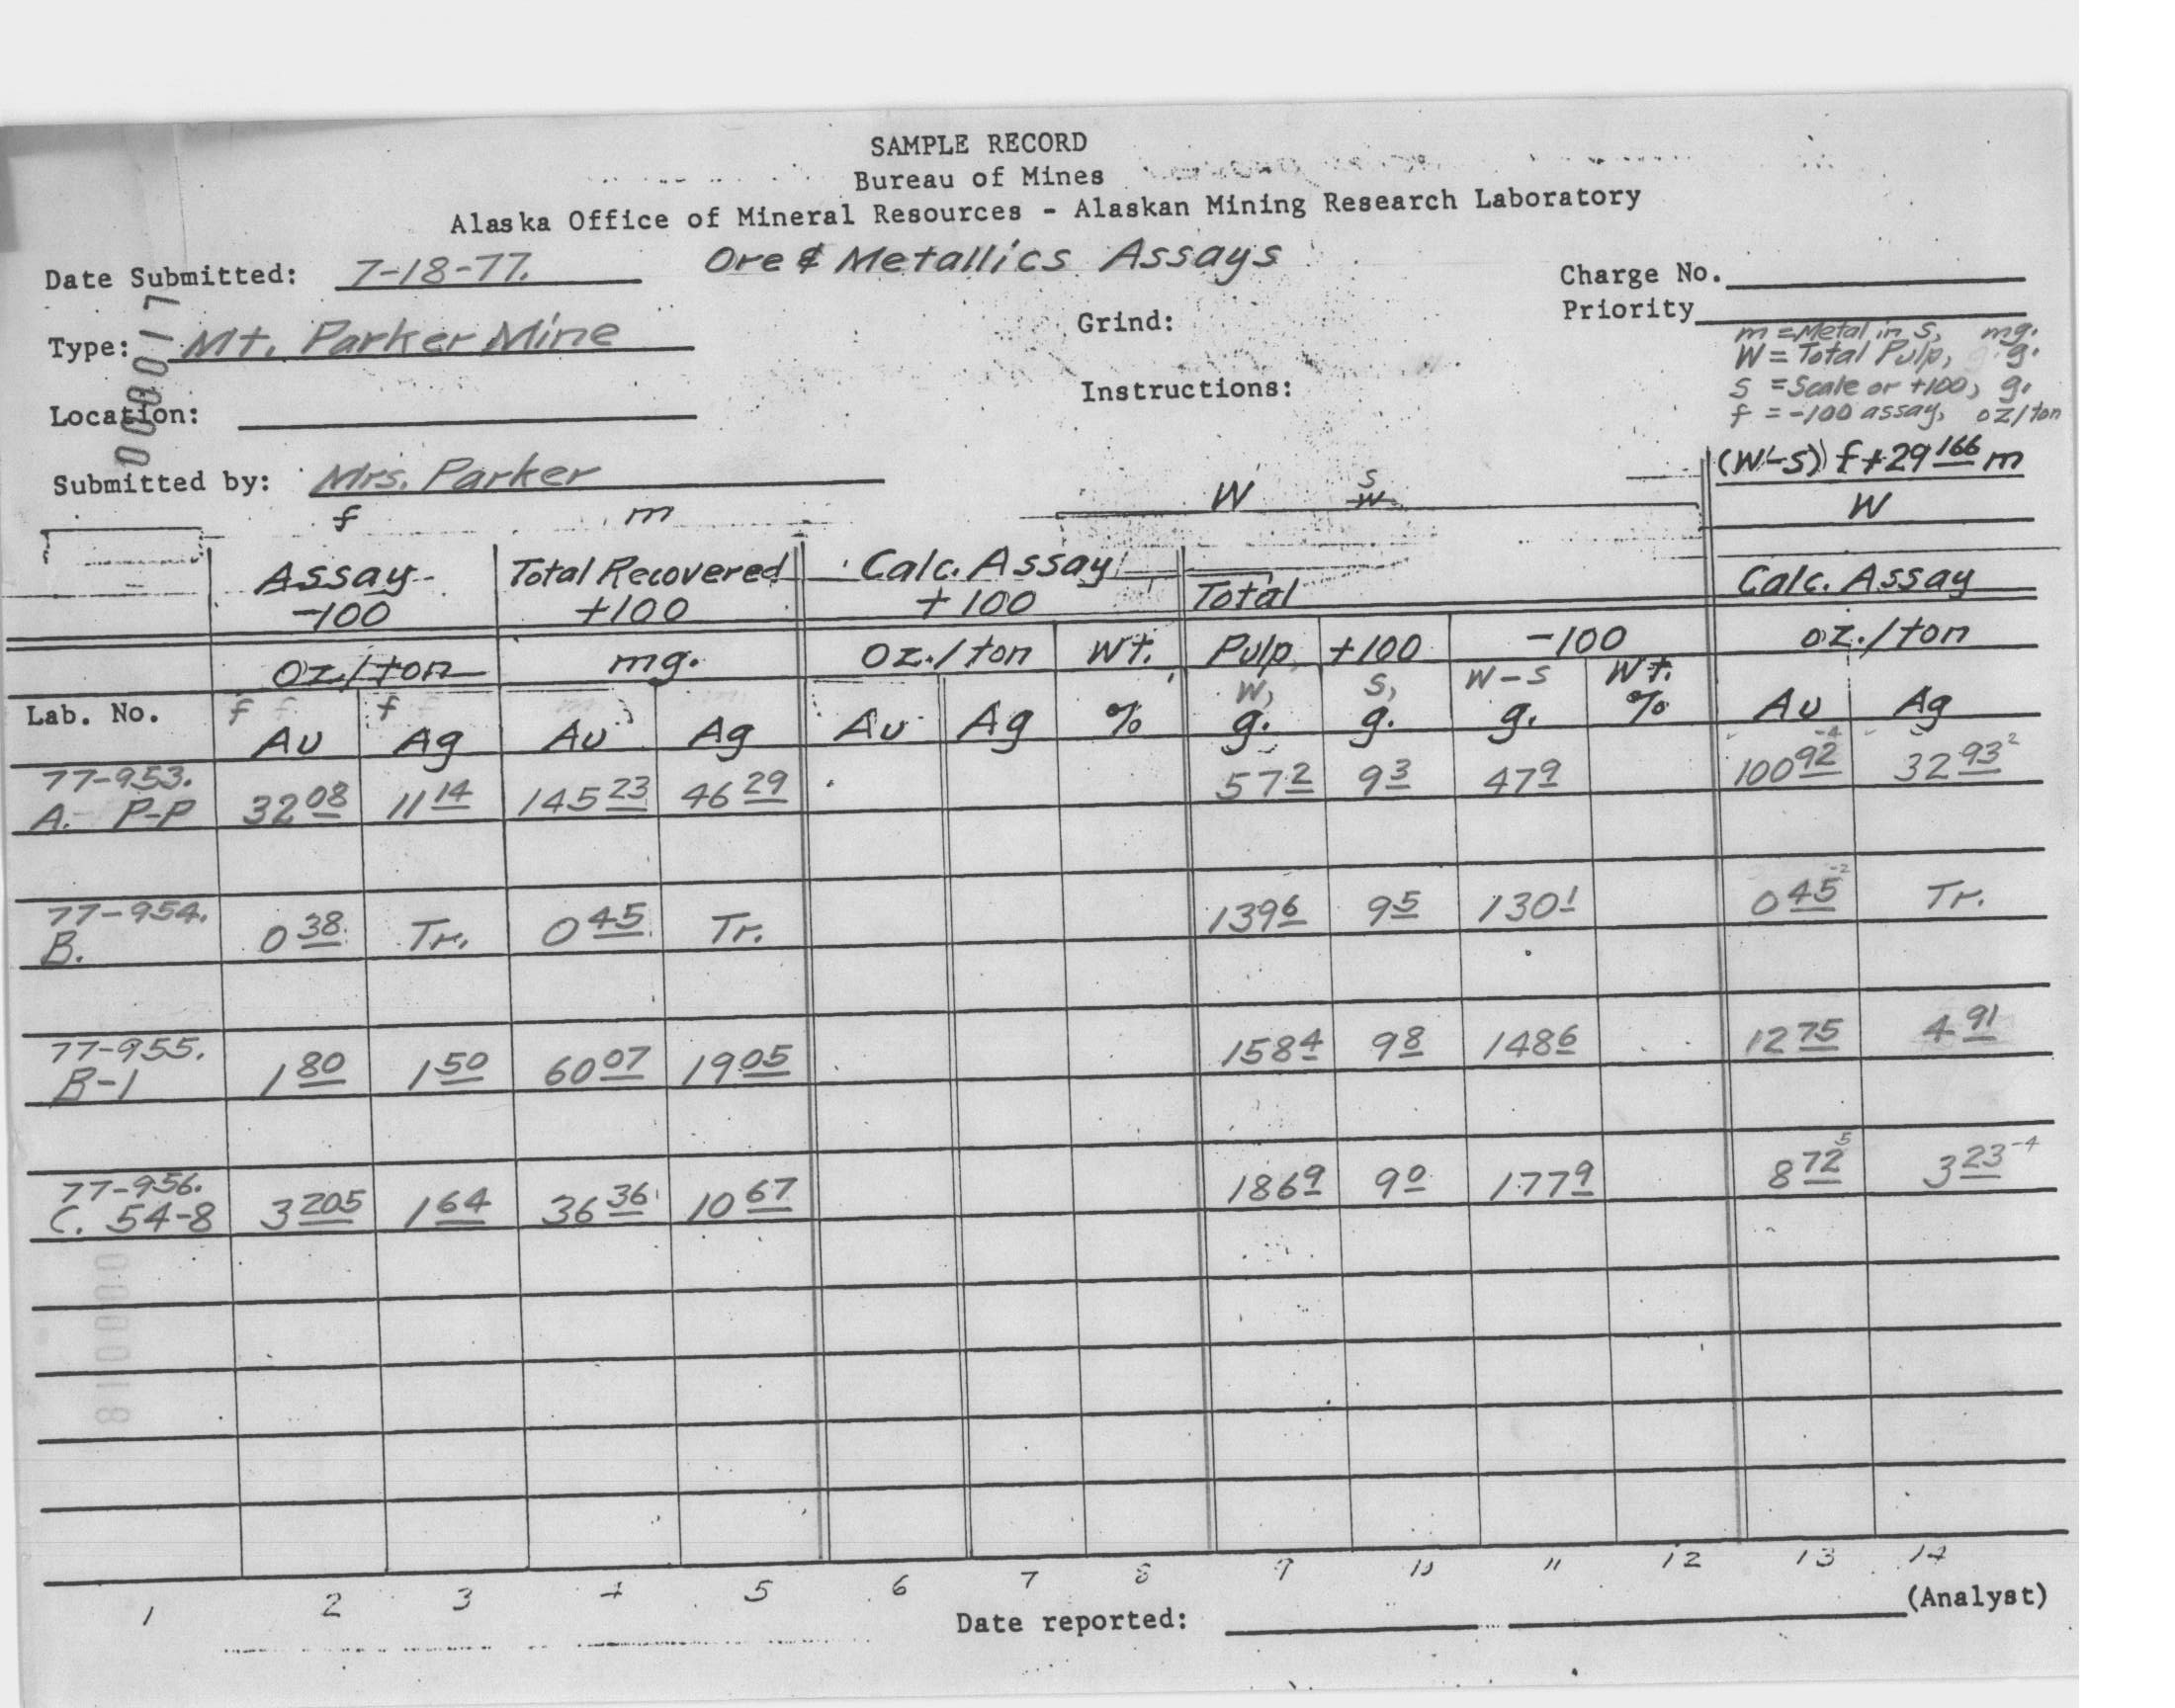 SAMPLE RECORD
Bureau of Mines
Alaska Office of Mineral Resources - Alaskan Mining Research Laboratory
Ore & Metallics Assays
Date Submitted: 7-18-77.
Charge No.
Type: Mt. Parker Mine
Grind:
Priority
m = Metal in S, mg.
W = Total Pulp, g.
S = Scale or +100, g.
f = -100 assay, oz/ton
Location:
Instructions:
0000017
Submitted by: Mrs. Parker
(W-S) f+29 166 m
W
f m W S W
Assay -100 Total Recovered +100 Calc. Assay +100 Total Calc. Assay
oz./ton mg. oz./ton Wt. Pulp +100 -100 oz./ton
W, S, W-S Wt.
Lab. No. f f
Au Ag Au Ag Au Ag % g. g. g. % Au Ag
77-953.
A. P-P 32 08 11 14 145 23 46 29 57 2 9 3 47 9 100 92 -4 32 93 2
77-954.
B. 0 38 Tr. 0 45 Tr. 139 6 9 5 130 1 0 45 -2 Tr.
77-955.
B-1 1 80 1 50 60 07 19 05 158 4 9 8 148 6 12 75 4 91
77-956.
C. 54-8 3 205 1 64 36 36 10 67 186 9 9 0 177 9 8 72 5 3 23 -4
0000018
1 2 3 4 5 6 7 8 9 10 11 12 13 14
Date reported: (Analyst)